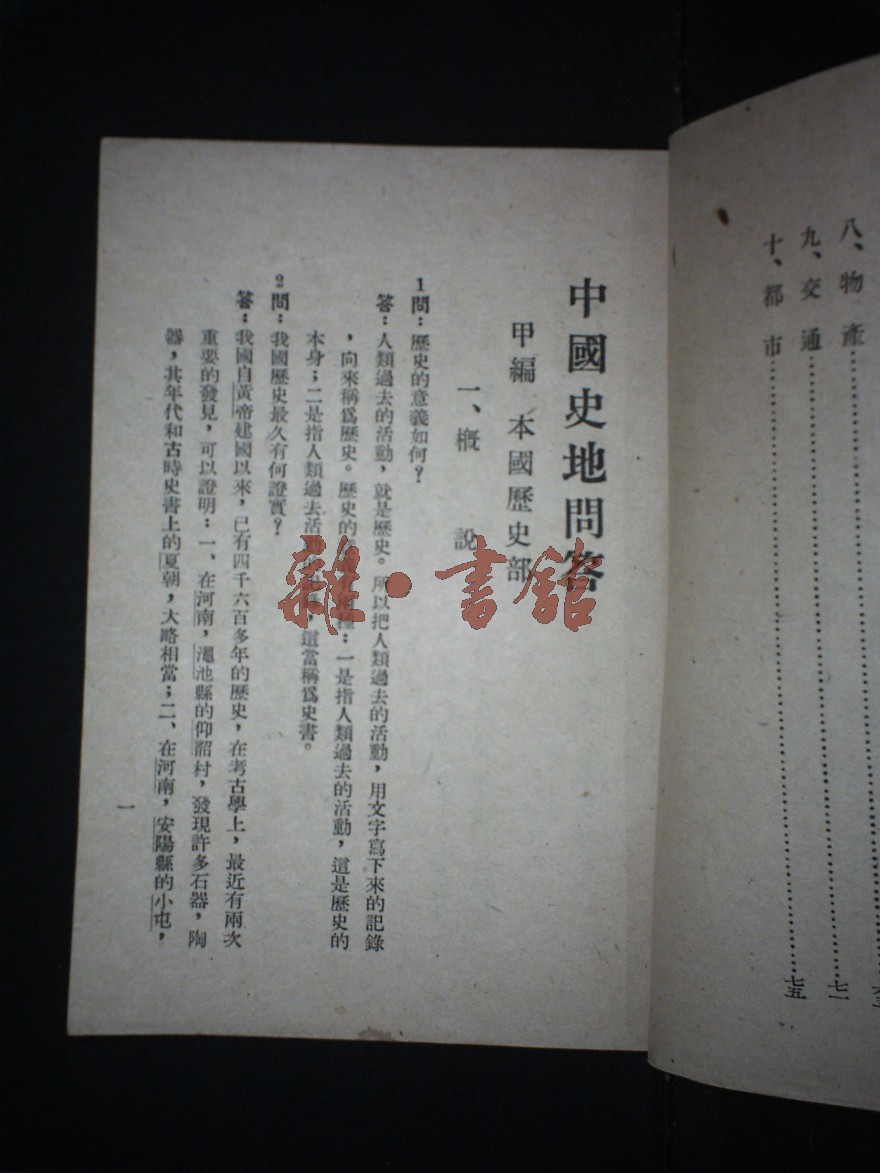 八、物產……
九、交通……七一
十、都市……七五
中國史地問答
甲編 本國歷史部
一、概說
1問：歷史的意義如何？
答：人類過去的活動，就是歷史。所以把人類過去的活動，用文字寫下來的記錄
，向來稱爲歷史。歷史的：一是指人類過去的活動，這是歷史的
本身；二是指人類過去活動的，這當稱爲史書。
2問：我國歷史最久有何證實？
答：我國自黃帝建國以來，已有四千六百多年的歷史，在考古學上，最近有兩次
重要的發見，可以證明：一、在河南，澠池縣的仰韶村，發現許多石器，陶
器，其年代和古時史書上的夏朝，大略相當；二、在河南，安陽縣的小屯，
一
雜·書館